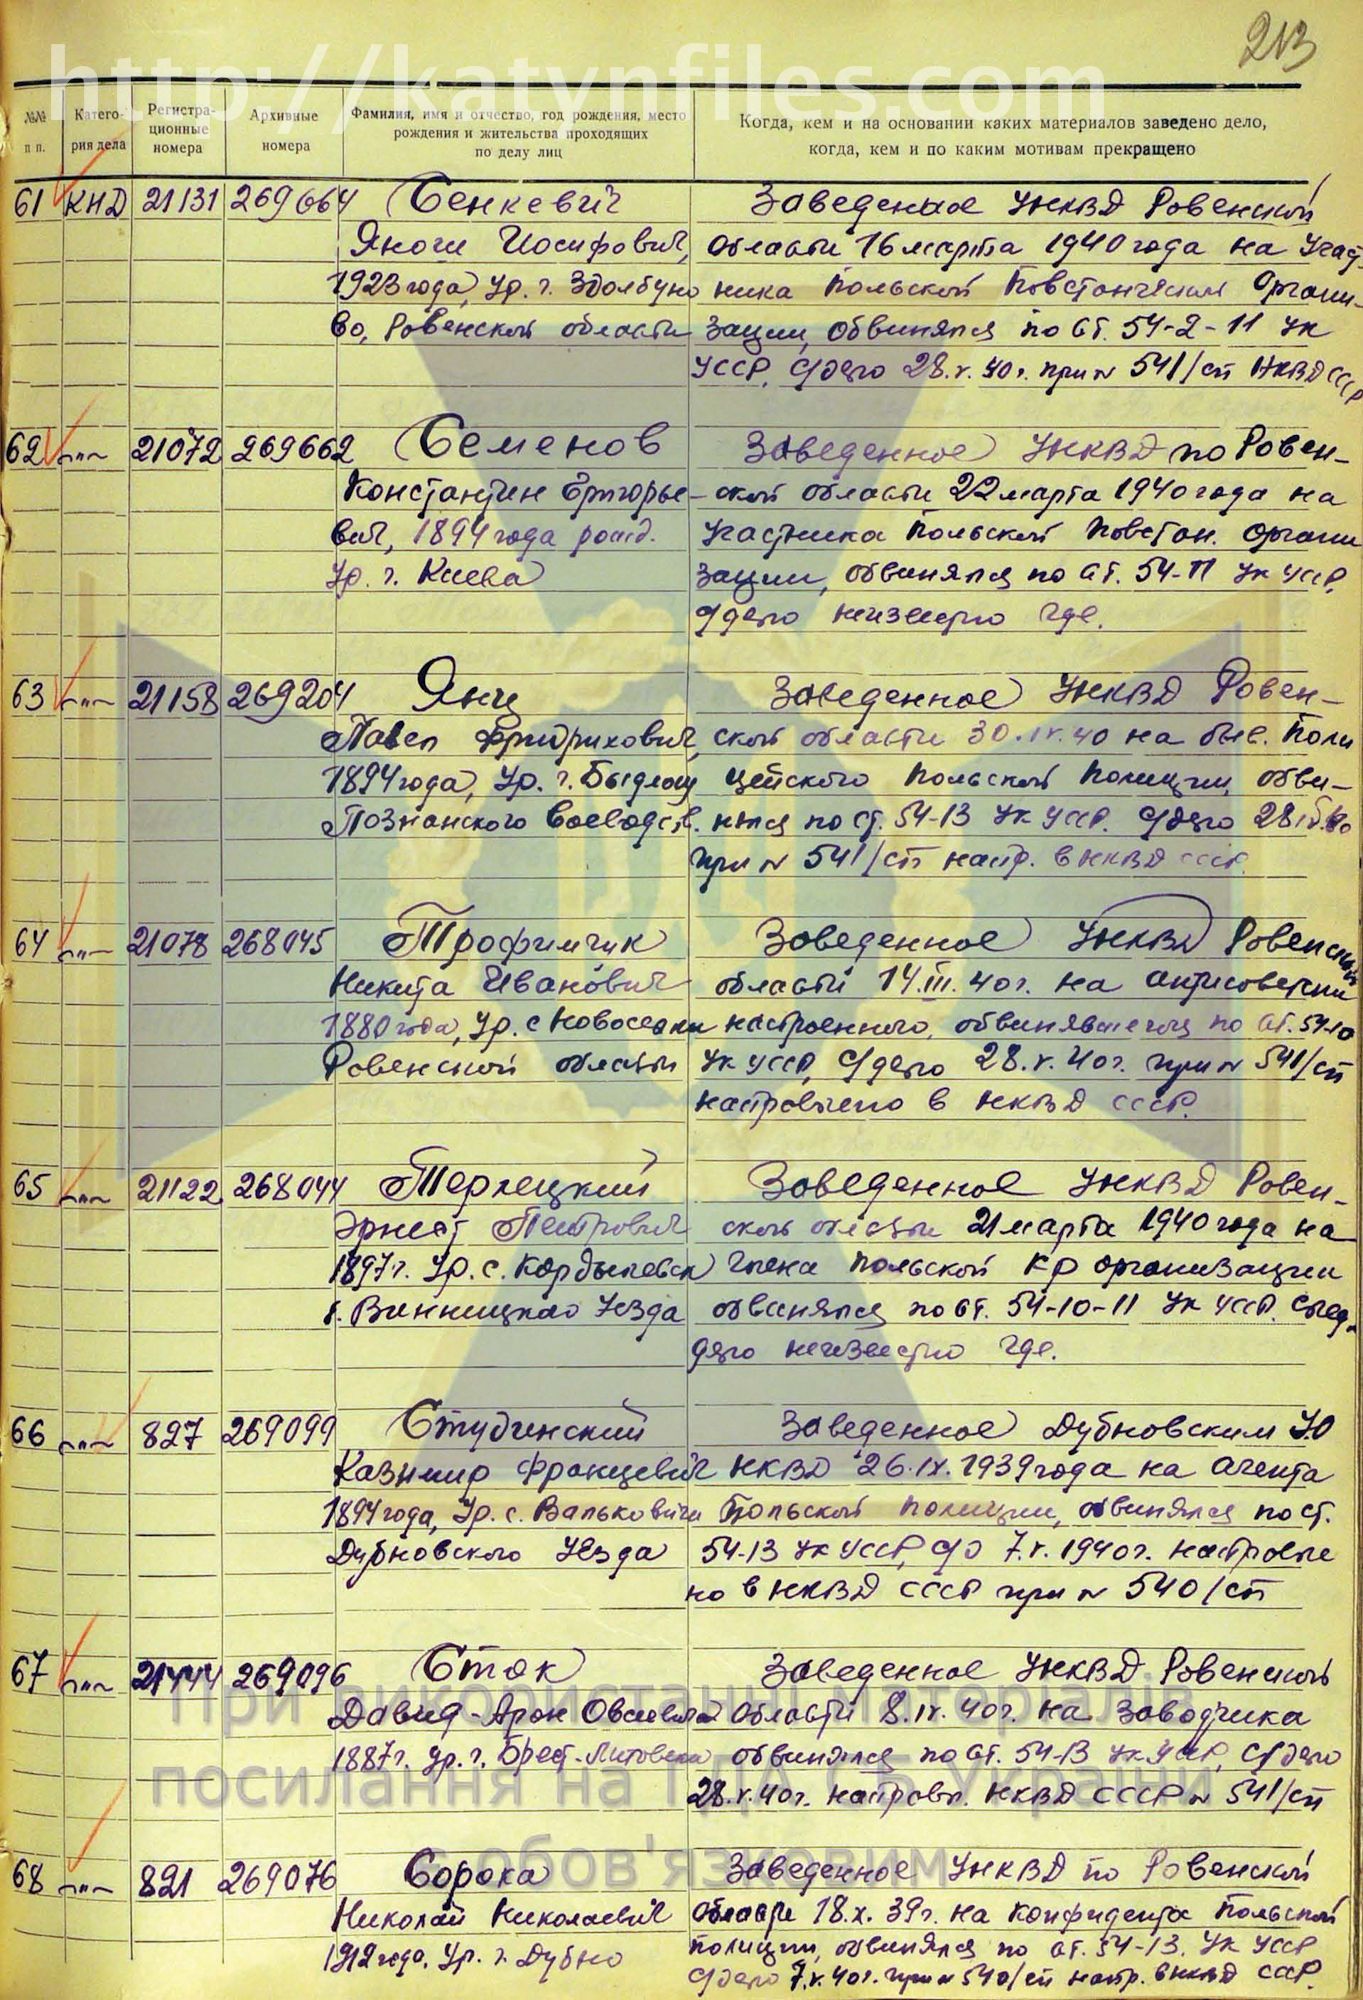 213
http://katynfiles.com
№№ п п.
Катего- рия дела
Регистра- ционные номера
Архивные номера
Фамилия, имя и отчество, год рождения, место рождения и жительства проходящих по делу лиц
Когда, кем и на основании каких материалов заведено дело, когда, кем и по каким мотивам прекращено
61 КНД 21131 269664 Сенкевич
Иосифович,
1923 года, Ур. г. Здолбуно
во, Ровенской области
Заведенное УНКВД Ровенской
области 16 марта 1940 года на Участ
ника Польской Повстанческой Органи-
зации, обвинялся по ст. 54-2-11 УК
УССР. с/дело 28.V.40г. при № 541/сп НКВД СССР
62 -"- 21072 269662 Семенов
Константин Григорье-
вич, 1894 года рожд.
Ур. г. Киева
Заведенное УНКВД по Ровен-
ской области 22 марта 1940 года на
Участника Польской Повстан. Органи
зации, обвинялся по ст. 54-11 УК УССР,
с/дело неизвестно где.
63 -"- 21158 269204 Янц
Павел Фридрихович,
1894 года, Ур. г. Быдгощ
Познанского Воеводств.
Заведенное УНКВД Ровен-
ской области 30.IV.40 на быв. Поли
цейского Польской Полиции, обви-
нялся по ст. 54-13 УК УССР. с/дело
при № 541/сп напр. в НКВД СССР.
64 -"- 21078 268045 Трофимчик
Никита Иванович
1880 года, Ур. с Новоселки
Ровенской области
Заведенное УНКВД Ровенской
области 14.III.40г. на антисоветски
настроенного, обвинявшегося по ст. 54-10
УК УССР, с/дело 28.V.40г. при № 541/сп
направлено в НКВД СССР.
65 -"- 21122 268044 Терлецкий
Эрнест Петрович
1897г. Ур. с.
г. Винницкого Уезда
Заведенное УНКВД Ровен-
ской области 21 марта 1940 года на
члена Польской КР организации
обвинялся по ст. 54-10-11 УК УССР. след.
дело неизвестно где.
66 -"- 827 269099 Студзинский
Казимир Францевич
1894 года, Ур. с. Вальковичи
Дубновского Уезда
Заведенное Дубновским УО
НКВД 26.IX.1939 года на агента
Польской полиции, обвинялся по ст.
54-13 УК УССР, с/д 7.V.1940г. направле
но в НКВД СССР при № 540/сп
67 -"- 269096 Сток
Давид-Арон
1887г. Ур. г. Брест-Литовска
Заведенное УНКВД Ровенской
области 8.IV.40г. на Заводчика
обвинялся по ст. 54-13 УК УССР, с/дело
28.V.40г. направл. НКВД СССР № 541/сп
68 -"- 821 269076 Сорока
Николай Николаевич
1912 года, Ур. г. Дубно
Заведенное УНКВД по Ровенской
области 18.X.39г. на конфидента Польской
полиции, обвинялся по ст. 54-13. УК УССР
с/дело 7.V.40г. при № 540/сп напр. в НКВД СССР.
При використанні матеріалів
посилання на ГДА СБ України
є обов'язковим